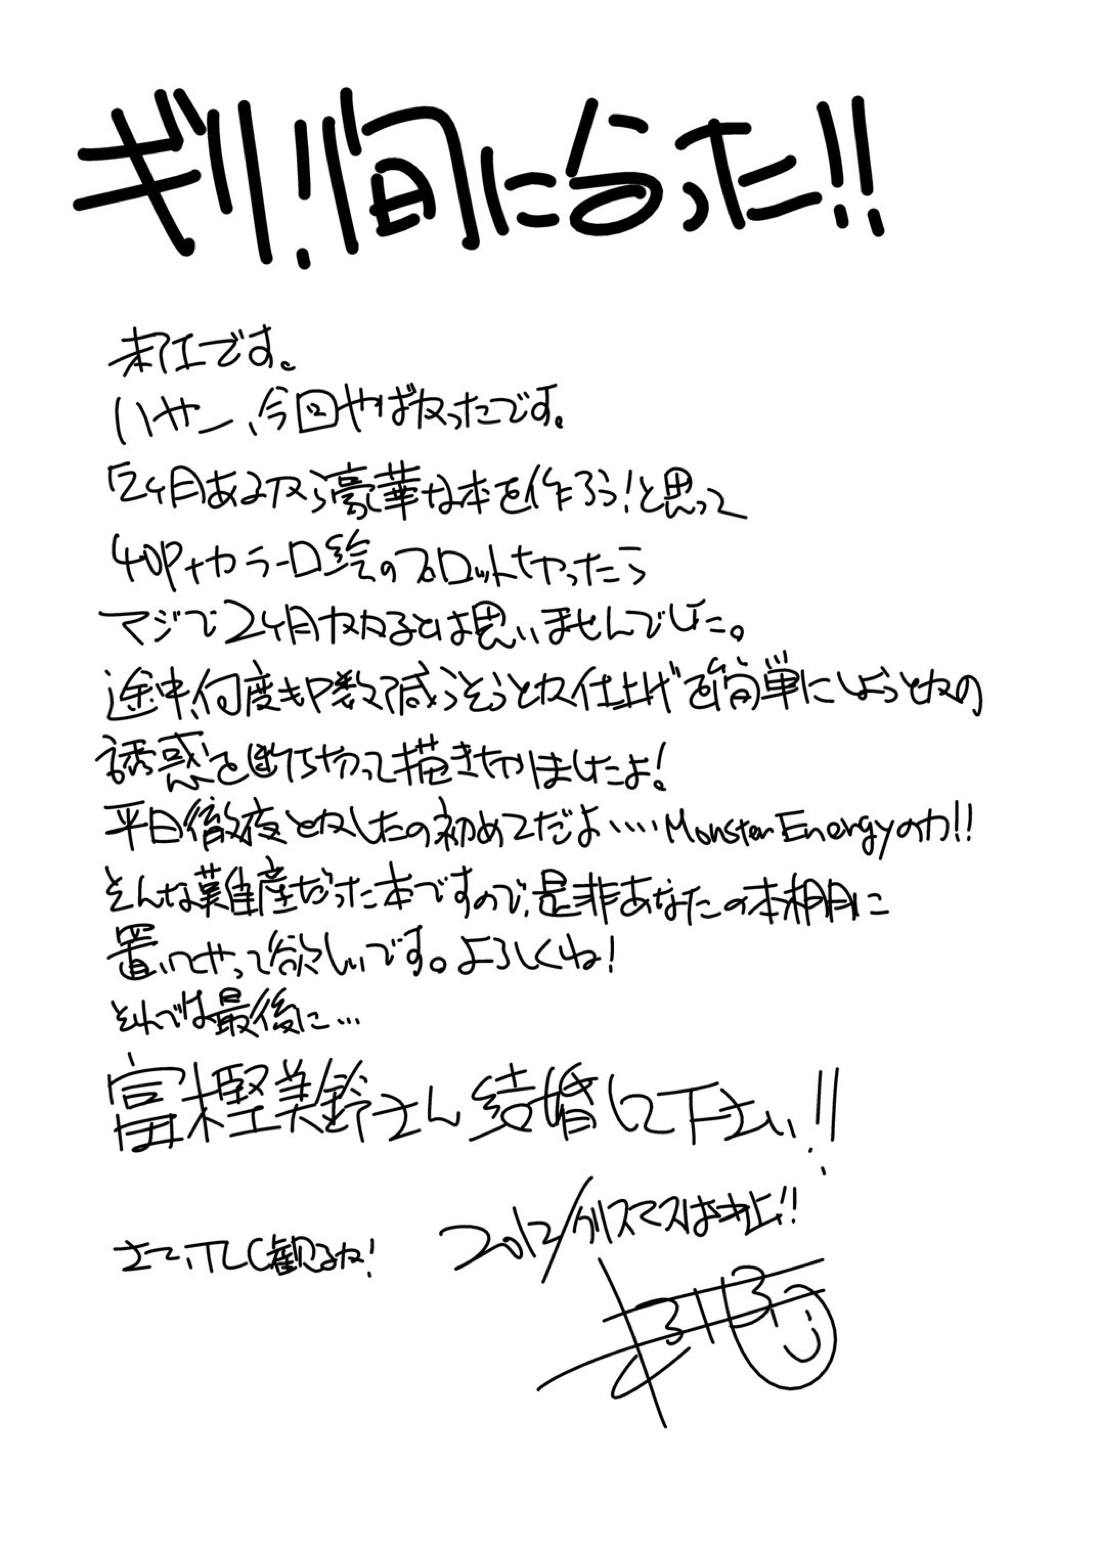 ギリ!間に合った!!
です。
いやー、今回やばかったです。
「2ヶ月あるなら豪華な本を作ろう!と思って
40P+カラー口絵のプロットやったら
マジで2ヶ月かかるとは思いませんでした。
途中、何度もP数減らそうとか仕上げを簡単にしようとかの
誘惑を断ち切って描ききりましたよ!
平日徹夜とかしたの初めてだよ‥‥Monster Energyの力!!
そんな難産だった本ですので、是非あなたの本棚に
置いてやって欲しいです。よろしくね!
それでは最後に…
富樫美鈴さん結婚して下さい!!
さて、TLC観るか!
2012/クリスマスは中止!!